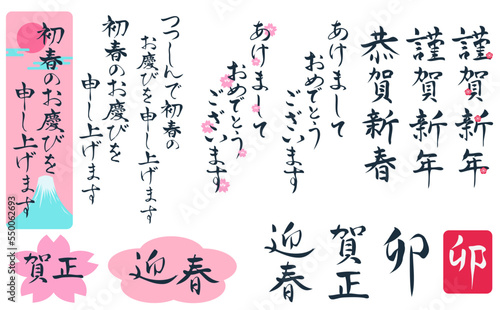 謹賀新年
謹賀新年
恭賀新春
あけまして
おめでとう
ございます
あけまして
おめでとう
ございます
つつしんで初春の
お慶びを申し上げます
初春のお慶びを
申し上げます
初春のお慶びを
申し上げます
卯
卯
賀正
迎春
迎春
賀正
550062693
Adobe Stock